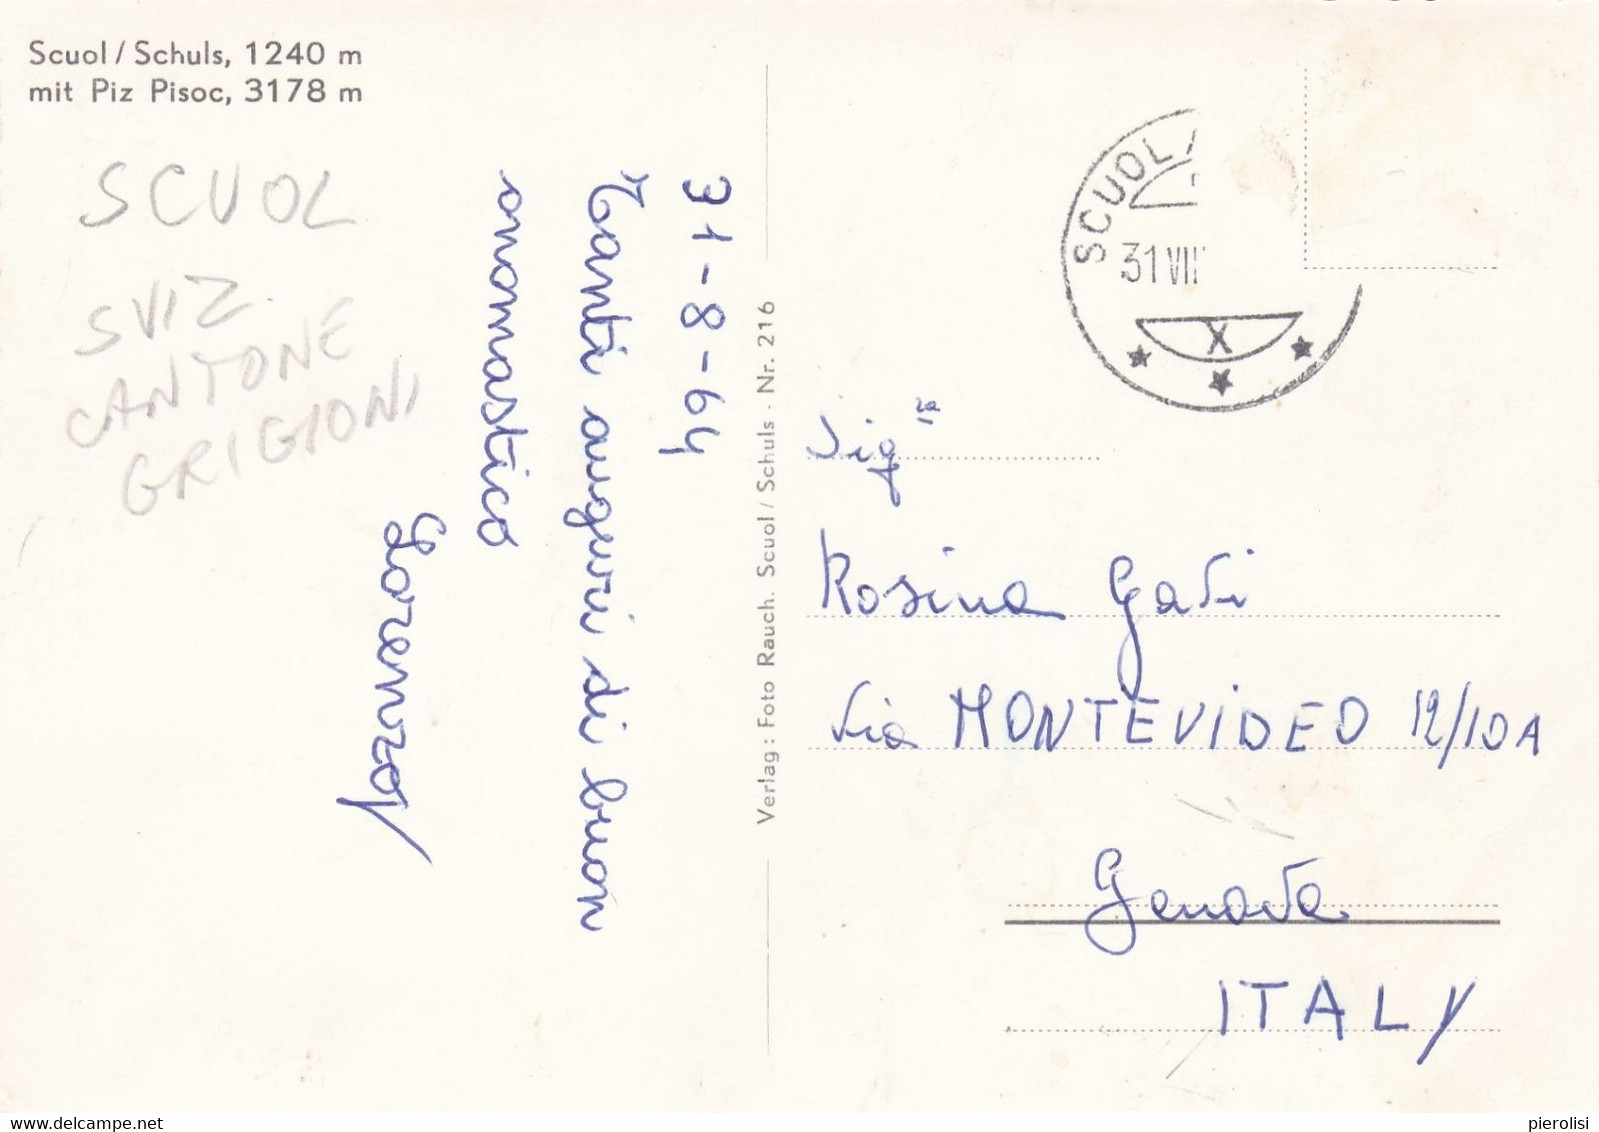 Scuol / Schuls, 1240 m
mit Piz Pisoc, 3178 m
SCUOL
SVIZ.
CANTONE
GRIGIONI
31-8-64
Tanti auguri di buon
onomastico
Lorenzo
Verlag: Foto Rauch. Scuol / Schuls - Nr. 216
SCUOL /
31 VII
X
Sig ra
Rosina Gati
Via MONTEVIDEO 12/10A
Genova
ITALY
delcampe.net
pierolisi